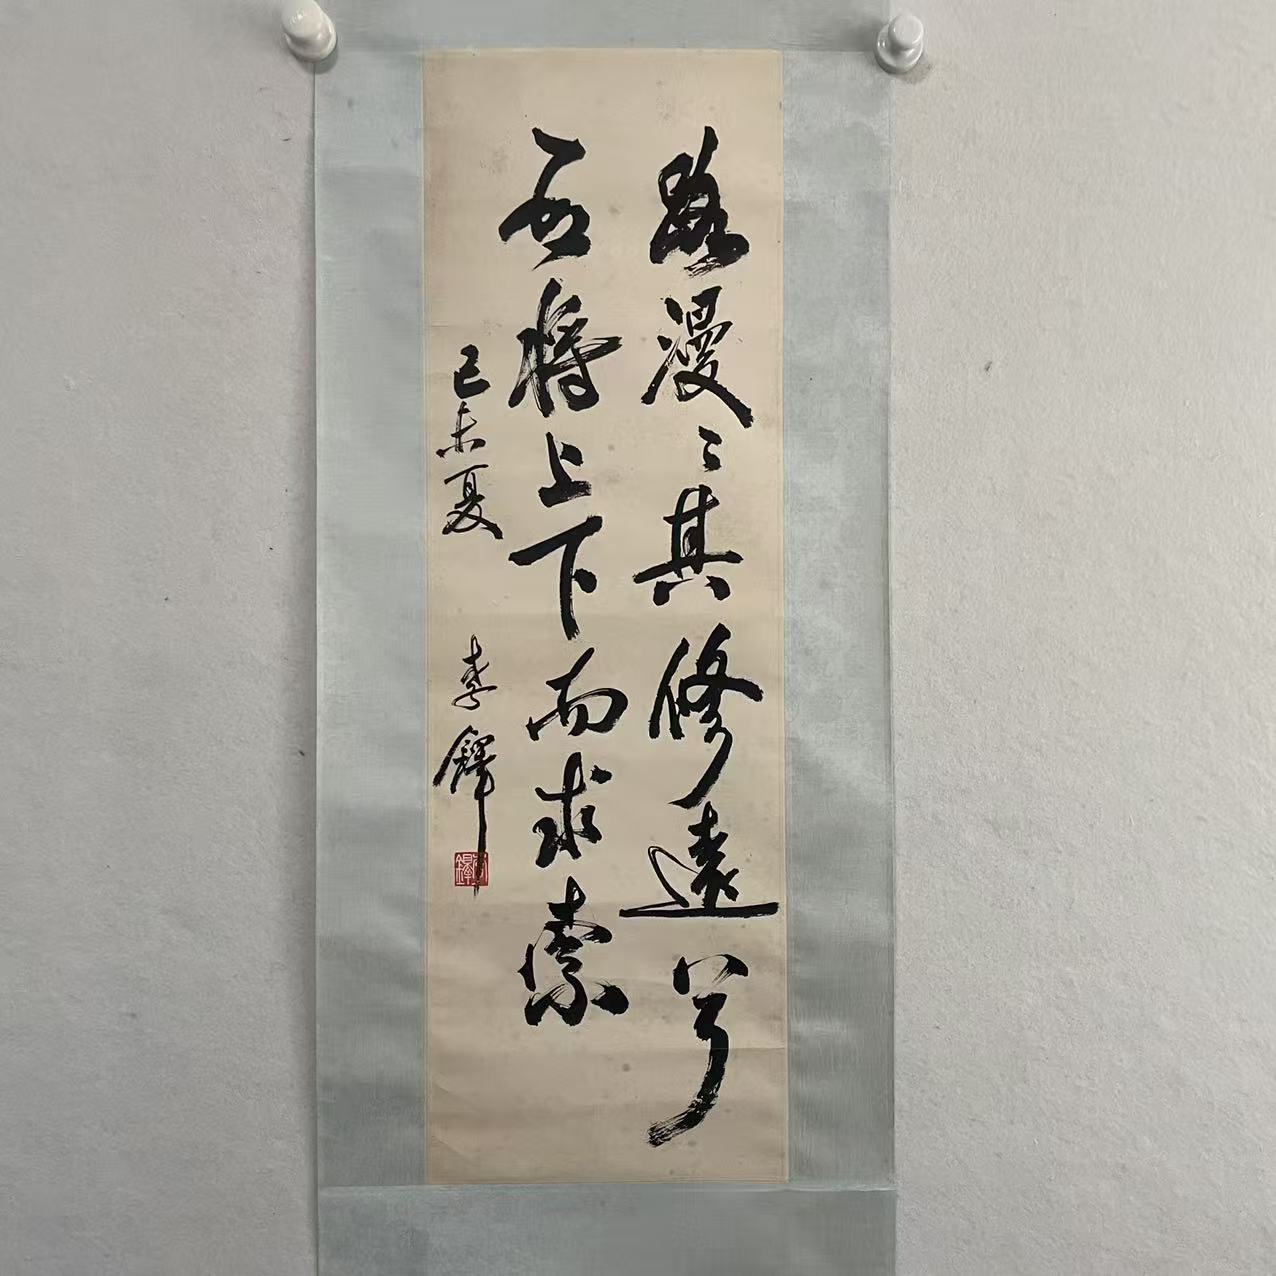 路漫〻其修遠兮
吾将上下而求索
己未夏
李鐸
李鐸